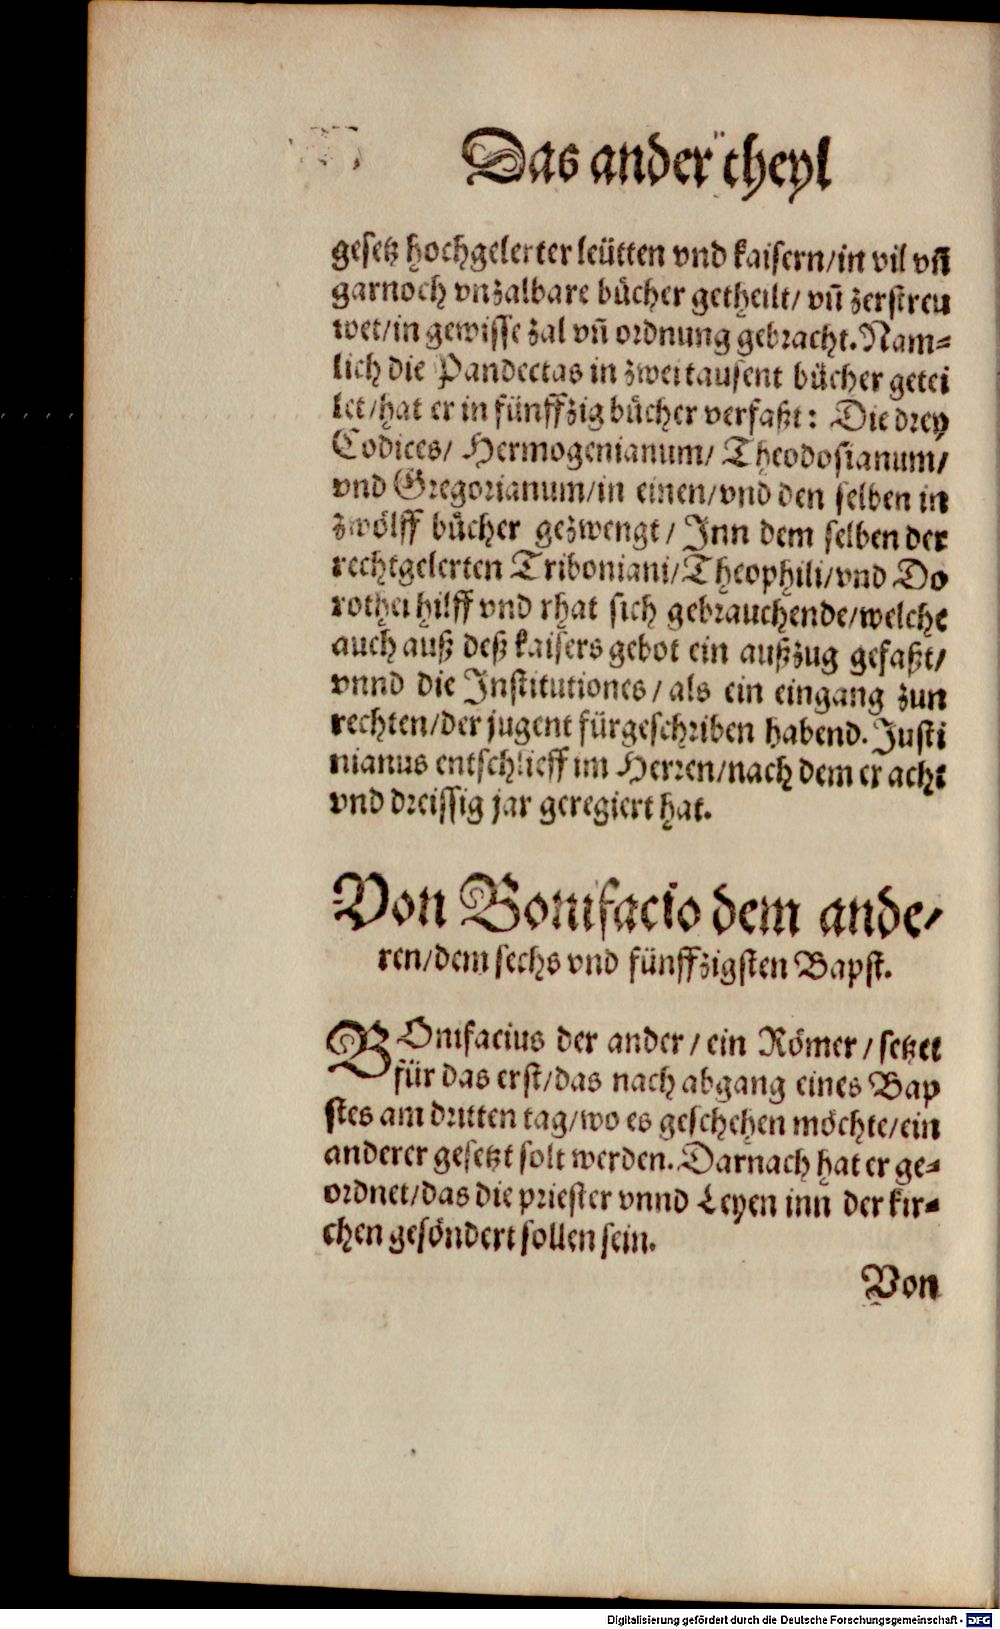 Das ander theyl
gesetz hochgelerter leütten vnd kaisern/in vil vñ
garnoch vnzalbare bücher getheilt/ vñ zerstreu
wet/in gewisse zal vñ ordnung gebracht. Nam⸗
lich die Pandectas in zwei tausent bücher getei
let/hat er in fünffzig bücher verfaßt: Die drey
Codices/ Hermogenianum/ Theodosianum/
vnd Gregorianum/in einen/vnd den selben in
zwölff bücher gezwengt/ Inn dem selben der
rechtgelerten Triboniani/Theophili/vnd Do
rothei hilff vnd rhat sich gebrauchende/welche
auch auß deß kaisers gebot ein außzug gefaßt/
vnnd die Institutiones/ als ein eingang zun
rechten/der jugent fürgeschriben habend. Justi
nianus entschlieff im Herren/nach dem er acht
vnd dreissig jar geregiert hat.
Von Bonifacio dem ande/
ren/dem sechs vnd fünffzigsten Bapst.
BOnifacius der ander/ ein Römer/ setzet
für das erst/das nach abgang eines Bap
stes am dritten tag/wo es geschehen möchte/ein
anderer gesetzt solt werden. Darnach hat er ge⸗
ordnet/das die priester vnnd Leyen inn der kir⸗
chen gesöndert sollen sein.
Von
Digitalisierung gefördert durch die Deutsche Forschungsgemeinschaft - DFG